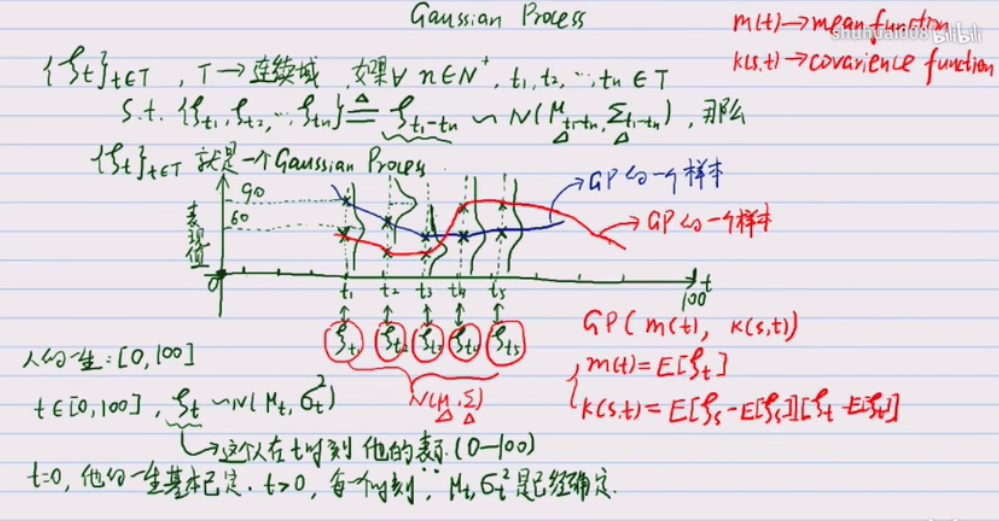 Gaussian Process
m(t)→mean function
shuhuai008 bilibili
k(s,t)→covarience function
{ξt}t∈T , T→连续域, 如果∀ n∈N⁺, t₁,t₂,…,tn∈T
s.t. {ξt₁,ξt₂,…,ξtn} ≜ ξt₁-tn ~ N(μt₁-tn, Σt₁-tn), 那么
{ξt}t∈T 就是一个Gaussian Process.
90
60
表现值
0
GP的一个样本
GP的一个样本
t₁ t₂ t₃ t₄ t₅
100
t
ξt₁ ξt₂ ξt₃ ξt₄ ξt₅
N(μ, Σ)
GP(m(t), k(s,t))
m(t)=E[ξt]
k(s,t)=E[ξs-E[ξs]][ξt-E[ξt]]
人的一生:[0,100]
t∈[0,100], ξt ~N(μt, σt²)
→这个人在t时刻 他的表示(0—100)
t=0, 他的一生基本已定. t>0, 每一个时刻, μt,σt²是已经确定.